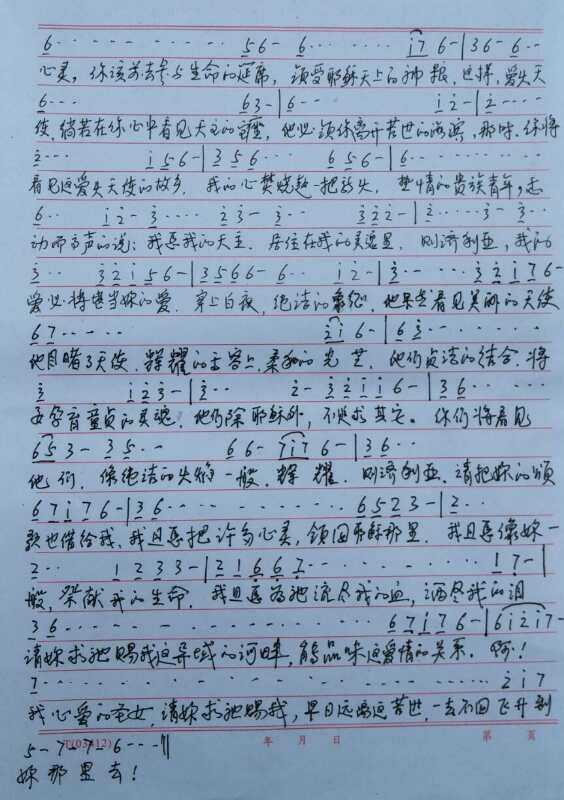 6··· ········ 5 6 - 6··· ···· i 7 6 - | 3 6 - 6··
心灵，你该前去参与生命的延席，领受耶稣天上的神粮，这样，爱失天
6··· 6 3 - | 6·· ········ i 2 - | 2····
使，倘若在你心中看见天主的宝座，他必领你离开苦世的海滨，那时，你将
2··· i 5 6 - | 3 5 6·· 6 5 6 - | 6··········
看见这爱失天使的故乡．我的心焚烧起一把新火，热情的贵族青年，
6·· i 2 - 3···· 2 3 - 3·· 3 2 2 - | 2···· 3 - 3··
动而有声的说：我要我的天主．居住在我的灵魂里．则济利亚，我的
3·· 3 2 i 5 6 - | 3 5 6 6 - 6·· i 2 - | 3··· ··· 3 2 i 7 6 -
爱必将堪当妳的爱．穿上白衣，绝洁的，他果然看见美丽的天使
6 7····· 2 i 6 - | 6 3·········
他目睹了天使．辉耀的圣容上，柔和的光芒．他们贞洁的结合，将
3 i 2 3 - | 2·· 2 - 3 2 i i 6 - | 3 6····
要孕育童贞的灵魂．他们除耶稣外，不恋求其它。你们将看见
6 5 3 - 3 5·· 6 6 - 7 i 7 6 - | 3 6··
他们．像绝洁的火焰一般．辉耀．则济利亚．请把妳的颂
6 7 i 7 6 - | 3 6·· ········· 6 5 2 3 - | 2··
歌也借给我，我且要把许多心灵，领回耶稣那里．我且要像妳一
2·· 1 2 3 3 - | 2 1 6 6 7·· ········ 1 7 - |
般，祭献我的生命．我且要为祂流尽我的血，洒尽我的泪
3 6·· ·············· 6 7 i 7 6 - | 6 i 2 i 7 -
请妳求祂赐我这异域的河畔，能品味这爱情的关系．啊！
7·· ················· 2 i 7
我心爱的圣女，请妳求祂赐我，早日远离这苦世，一去不回飞升到
5 - 7 - 7 - 6···-‖
(03412) 年 月 日 第 页
妳那里去！